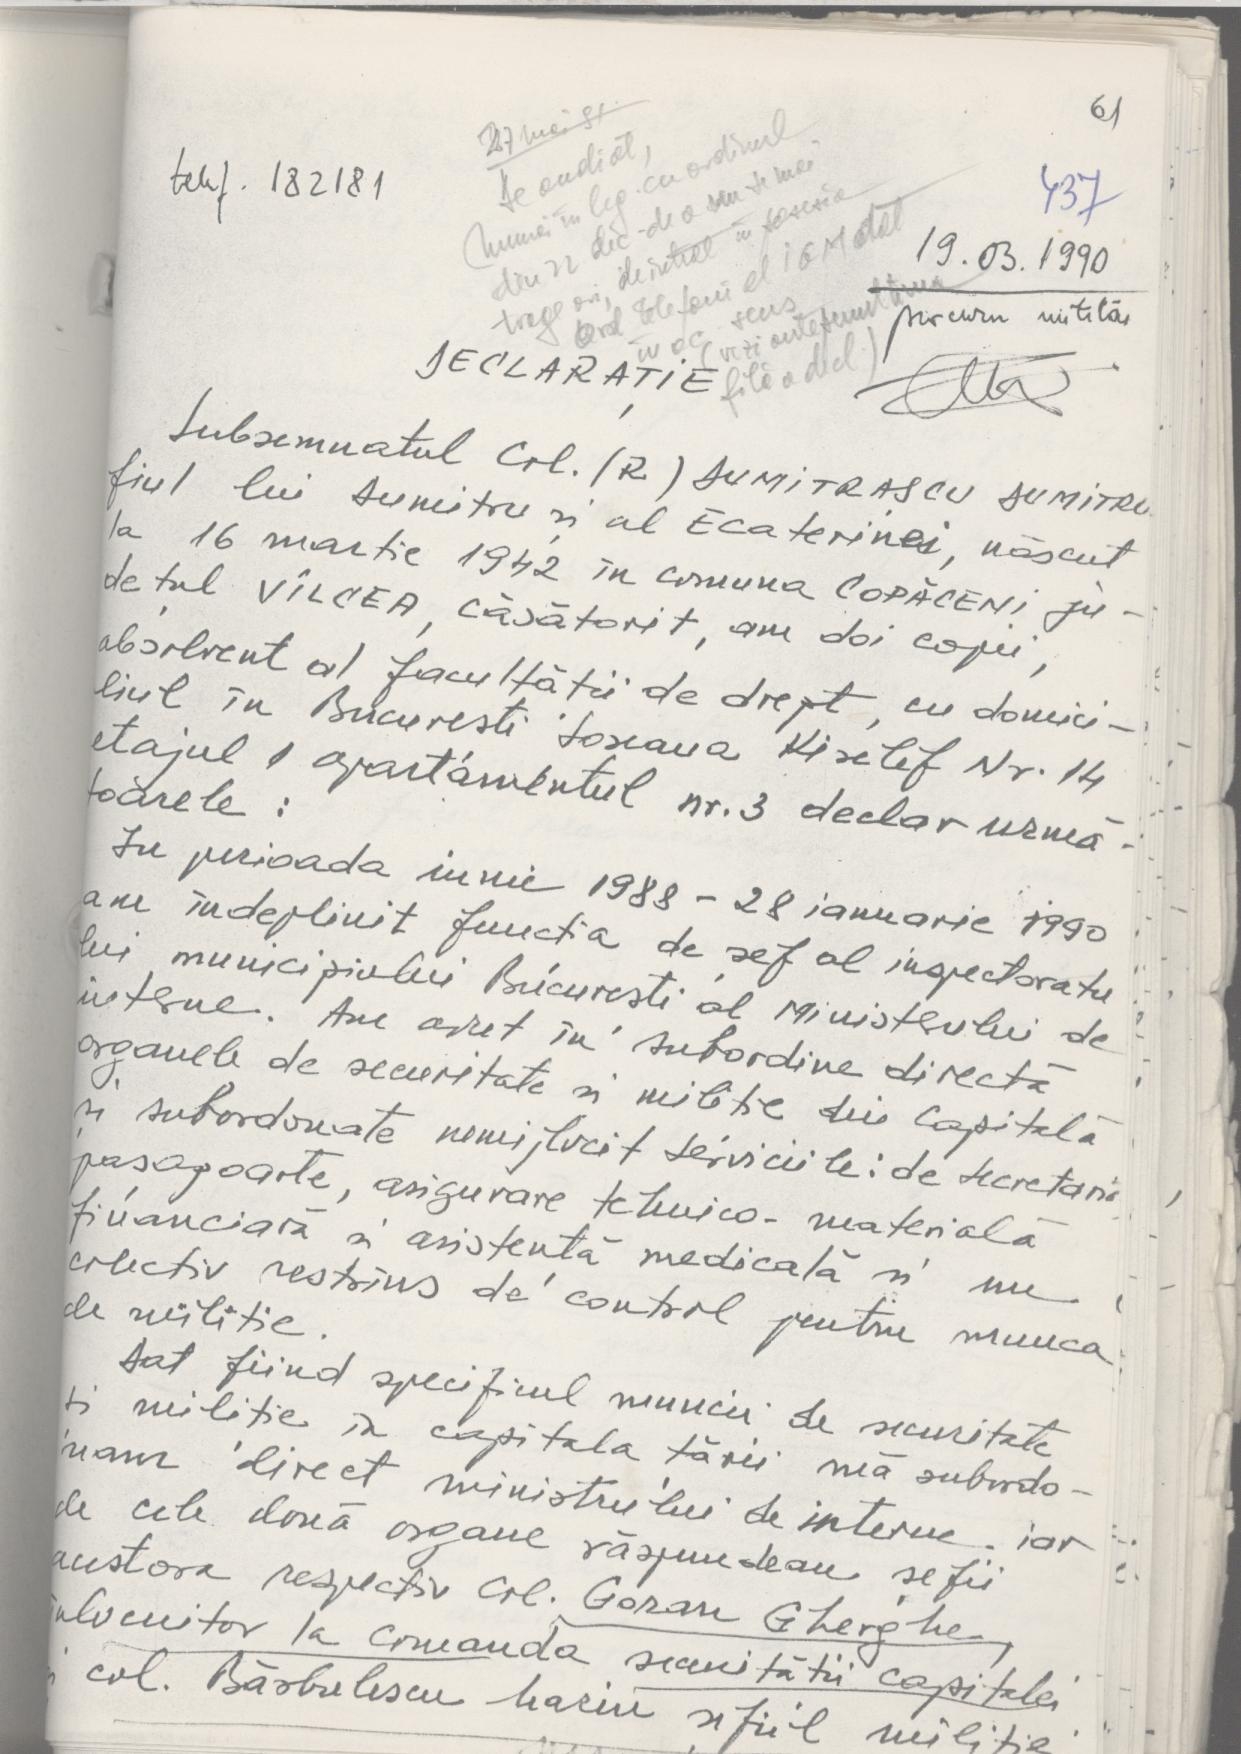 61
telf. 182181
437
27 mai 91
De audiat,
(numai în leg. cu ordinul
din 22 dec. de a nu se mai
trage
telefonic
în ac. sens
(vezi
19.03.1990
procuror militar
DECLARAȚIE
Subsemnatul Col. (R) DUMITRAȘCU DUMITRU
fiul lui Dumitru și al Ecaterinei, născut
la 16 martie 1942 în comuna COPĂCENI ju-
dețul VÎLCEA, căsătorit, am doi copii,
absolvent al facultății de drept, cu domici-
liul în București Șoseaua Kiselef Nr. 14
etajul 1 apartamentul nr. 3 declar urmă-
toarele:
In perioada iunie 1988 - 28 ianuarie 1990
am îndeplinit funcția de șef al inspectoratu
lui municipiului București al Ministerului de
interne. Am avut în subordine directă
organele de securitate și miliție din Capitală
și subordonate nemijlocit serviciile: de secretari
pașapoarte, asigurare tehnico-materială
financiară și asistentă medicală și un
colectiv restrîns de control pentru munca
de miliție.
Dat fiind specificul muncii de securitate
și miliție în capitala țării mă subordo-
nam direct ministrului de interne iar
de cele două organe răspundeau șefii
acestora respectiv Col. Goran Gherghe,
înlocuitor la comanda securității capitalei
și col. Bărbulescu Marin șeful miliție